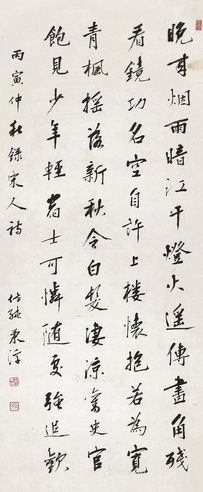 晚来烟雨暗江干燈火遥傳畫角残
看鏡功名空自許上樓懷抱若為寬
青楓搖落新秋令白髮淒涼舊史官
飽見少年輕士可憐隨處強追歡
丙寅仲秋錄宋人詩